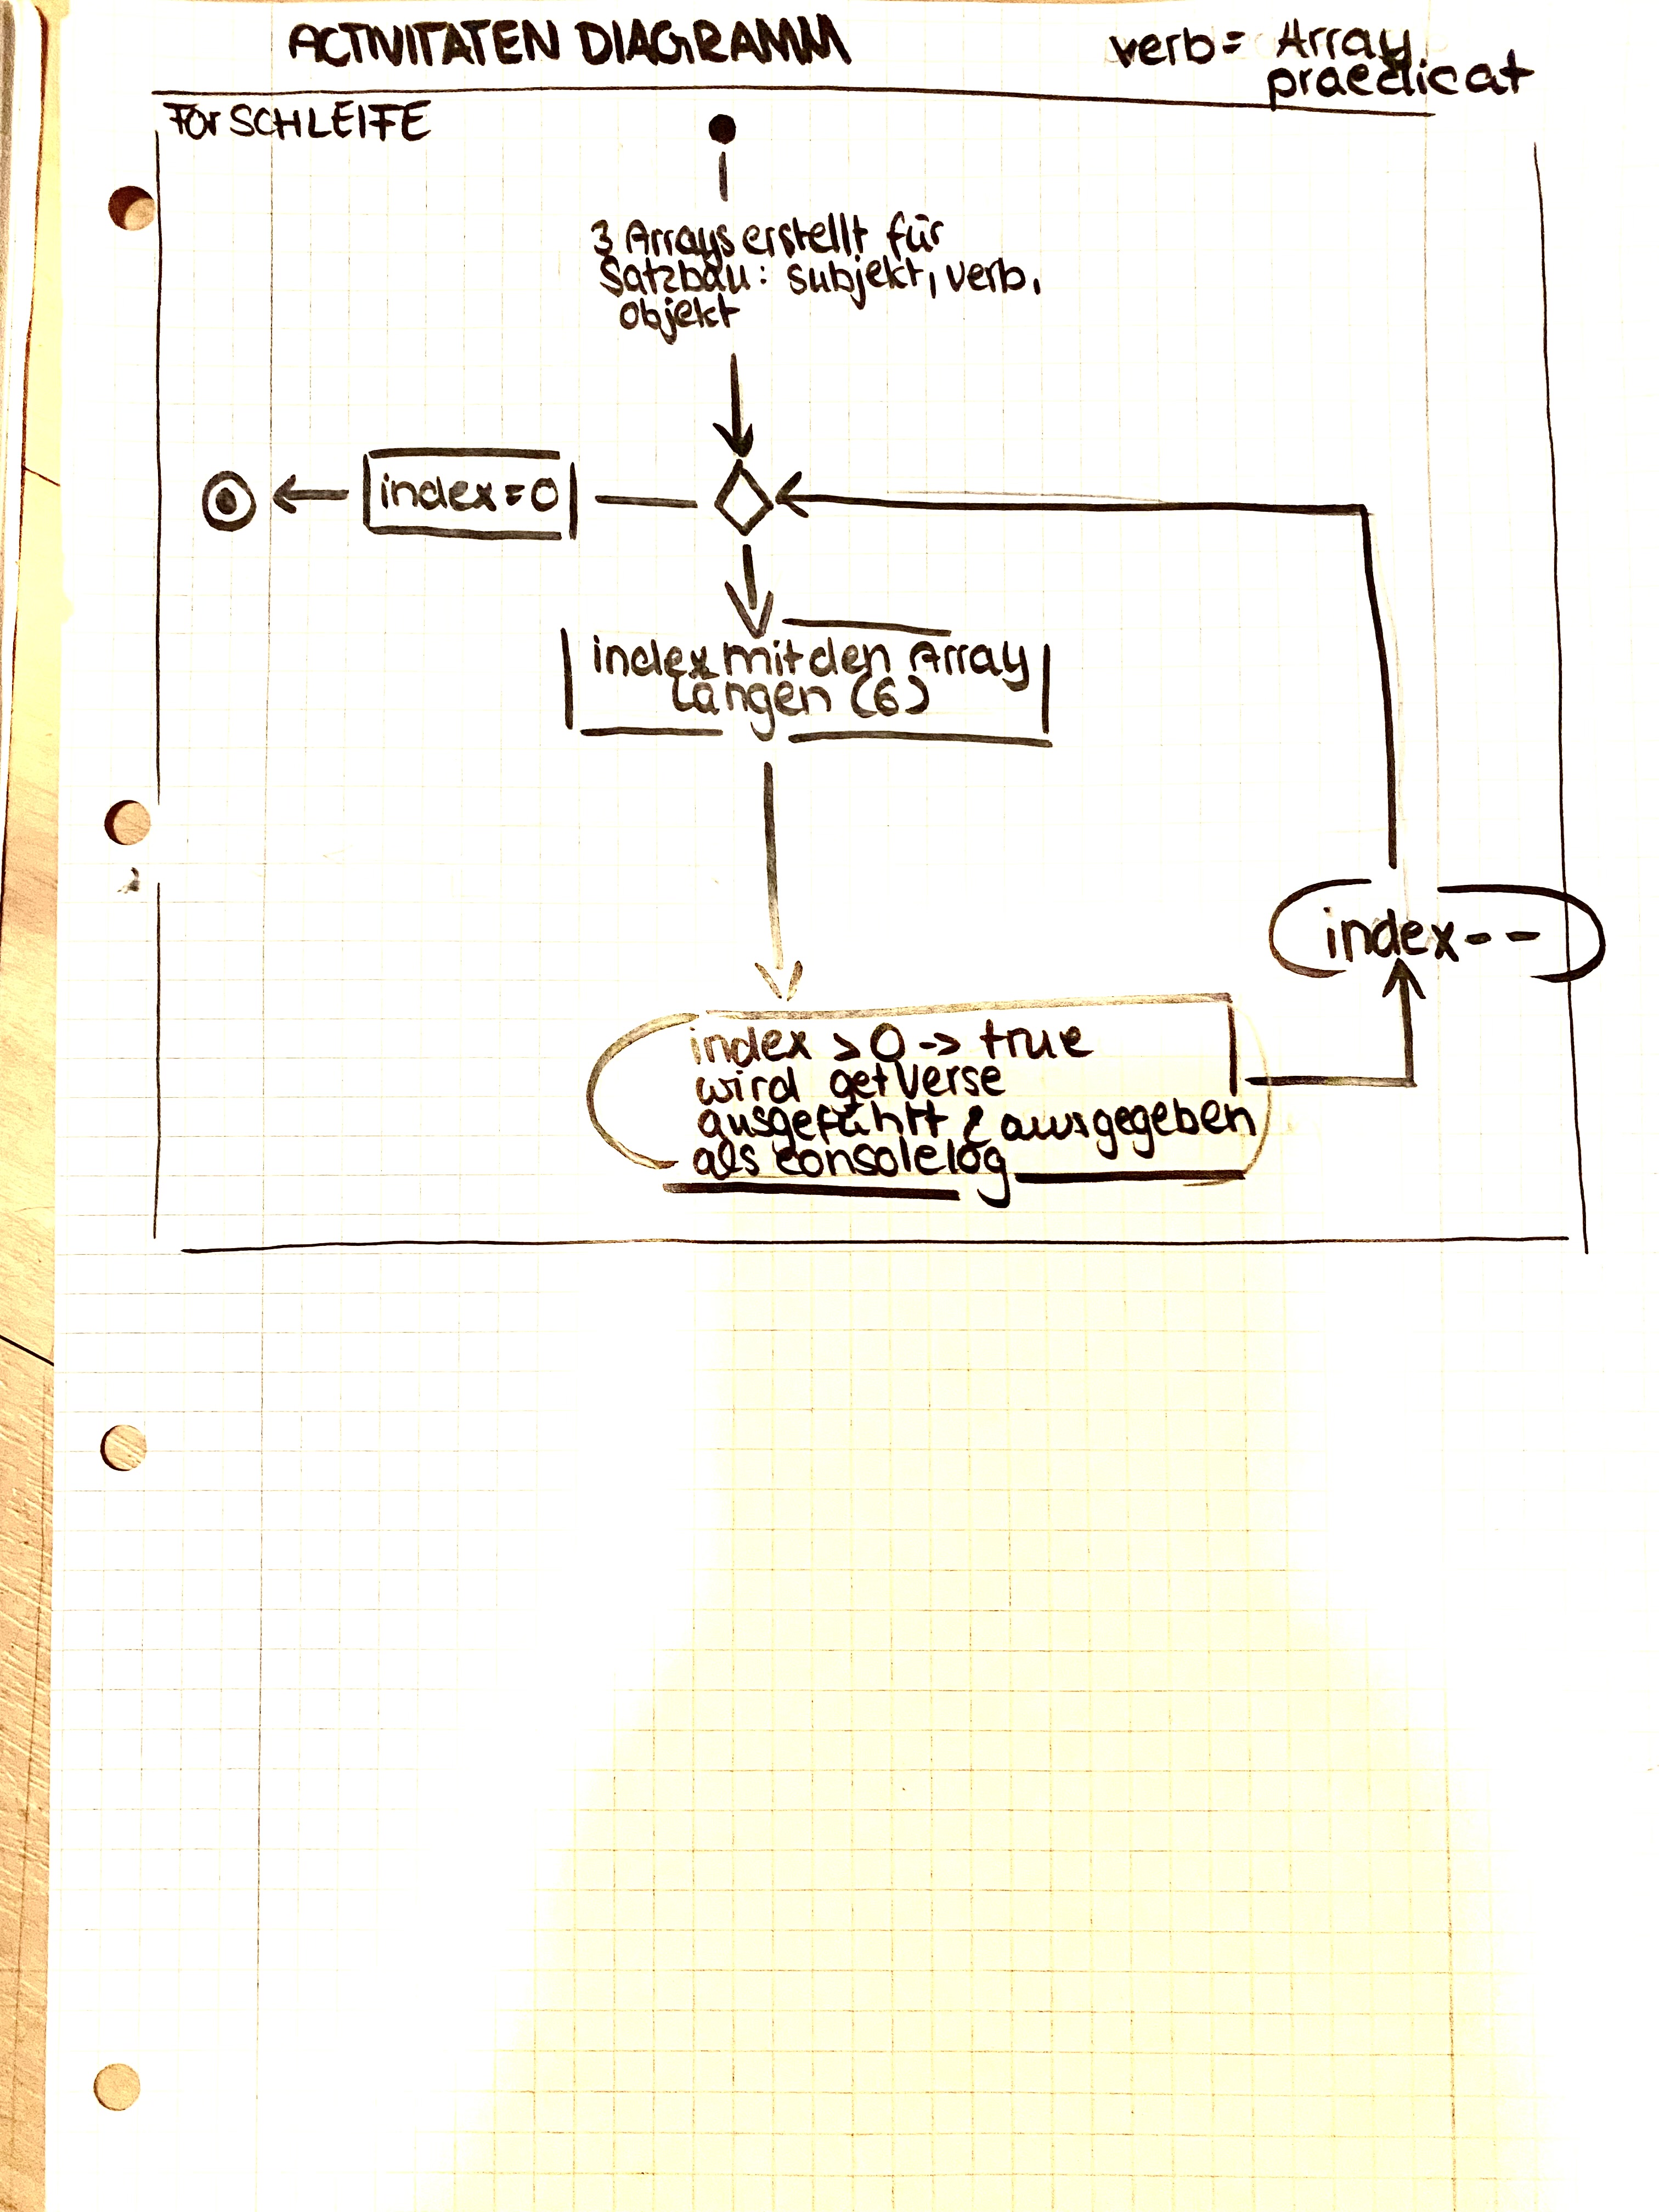 ACTIVITÄTEN DIAGRAMM
verb = Array
praedicat
For SCHLEIFE
3 Arrays erstellt für
Satzbau: subjekt, verb,
objekt
index = 0
index mit den Array
Längen (6)
index --
index > 0 -> true
wird getVerse
ausgeführt & ausgegeben
als consolelog